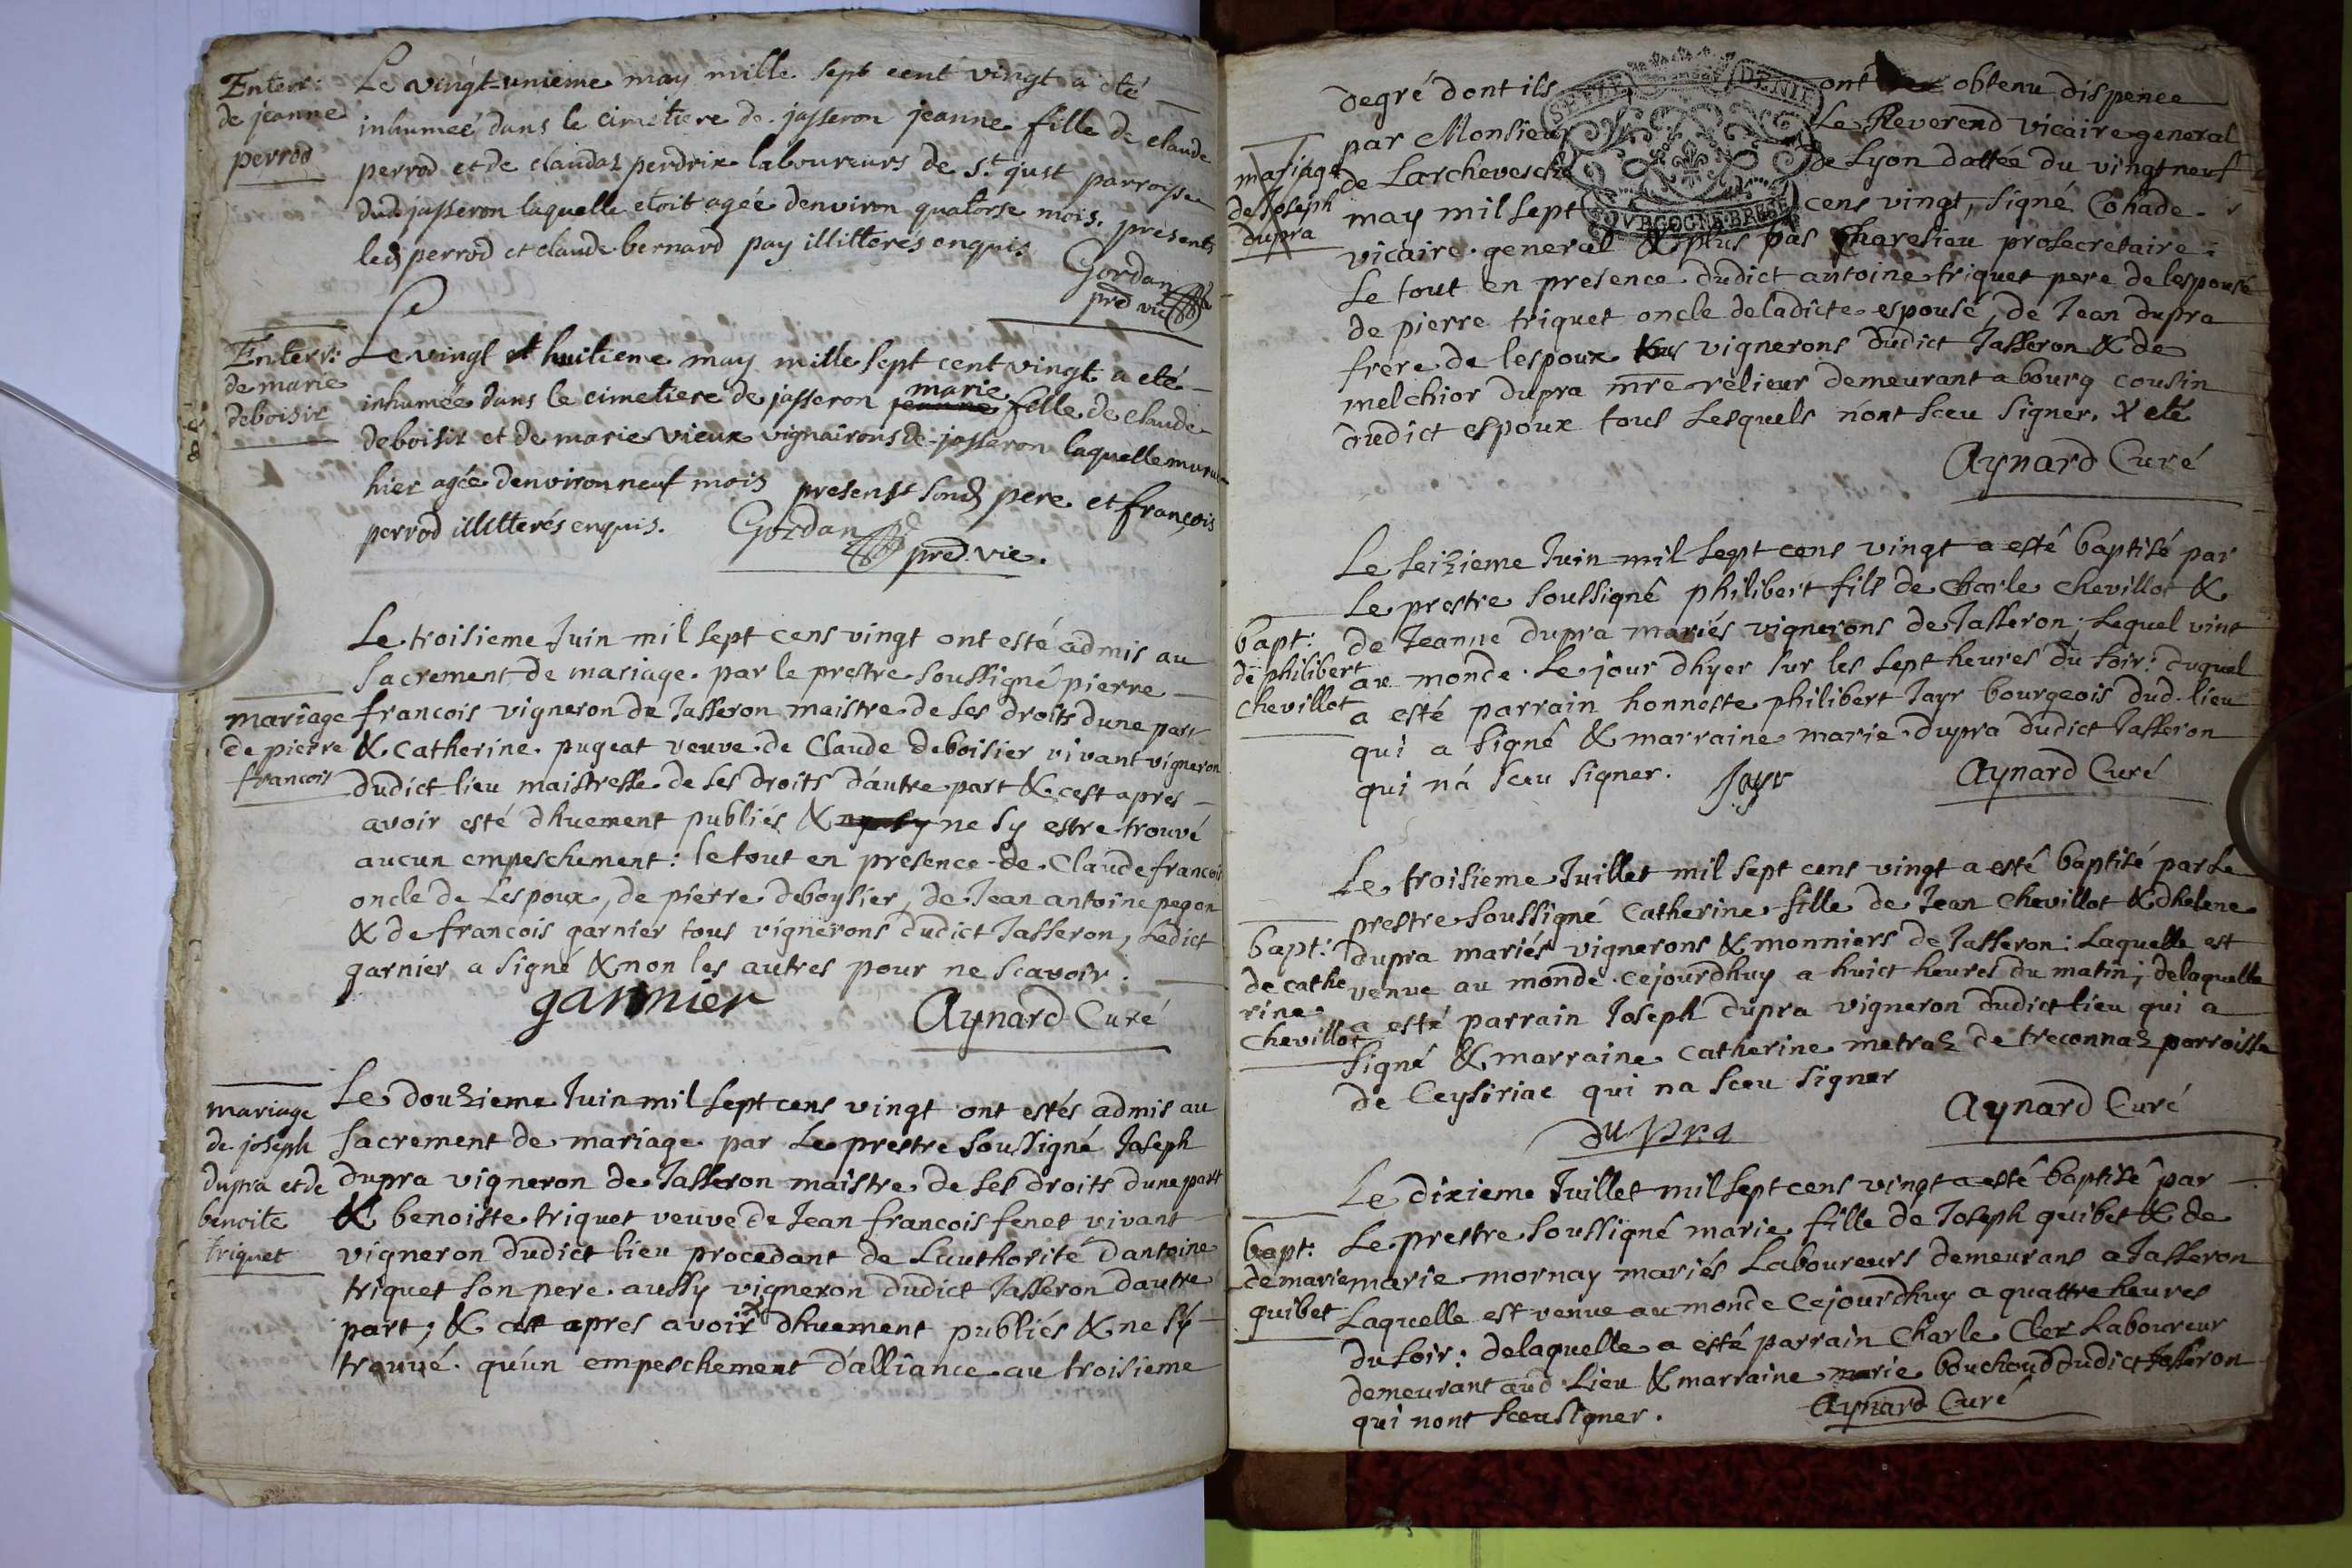 Enterr:
de jeanne
perrod
Le vingt-unieme may mille sept cent vingt a eté
inhumeé dans le cimetiere de jasseron jeanne fille de claude
perrod et de claudaz perdrix laboureurs de St. just parroisse
dud jasseron laquelle etoit agée denviron quatorse mois, présents
led perrod et claude bernard pay illitterés enquis.
Gordan
pred vic
Enterr:
de marie
deboisir
Le vingt et huitieme may mille sept cent vingt a eté
marie
inhumeë dans le cimetiere de jasseron jeanne fille de claude
deboisir et de marie vieux vignairons de jasseron laquelle murut
hier agée denviron neuf mois presenst sond pere et françois
perrod illitterés enquis. Gordan
pred. vic.
mariage
de pierre
francois
Le troisieme Juin mil sept cens vingt ont esté admis au
Sacrement de mariage par le prestre soussigné pierre
francois vigneron de Jasseron maistre de ses droits dune part
& catherine pugeat veuve de Claude deboisier vivant vigneron
dudict lieu maistresse de ses droits dautre part & cest apres
avoir esté dhuement publiés & ne sy estre trouvé
aucun empeschement: le tout en presence de Claude francois
oncle de Lespoux, de pierre deboysier, de Jean antoine pegon
& de francois garnier tous vignerons dudict Jasseron, Ledict
garnier a signé & non les autres pour ne scavoir.
garnier
Aynard Curé
mariage
de joseph
dupra et de
benoite
triquet
Le douzieme Juin mil sept cens vingt ont estés admis au
sacrement de mariage par Le prestre soussigné Joseph
dupra vigneron de Jasseron maistre de ses droits dune part
& benoiste triquet veuve de Jean francois fenet vivant
vigneron dudict lieu procedant de Lauthorité dantoine
triquet son pere aussy vigneron dudict Jasseron dautre
part; & cest apres avoir x dhuement publiés & ne sy
trouvé qu'un empeschement d'alliance au troisieme
mariage
de Joseph
dupra
degré dont ils ont obtenu dispence
par Monsieur Le Reverend vicaire general
de Larchevesché de Lyon dattée du vingt neuf
may mil sept cens vingt, signé Cohade
vicaire general & plus bas Charesieu prosecretaire:
Le tout en presence dudict antoine triquet pere de lespouse
de pierre triquet oncle de ladicte espouse, de Jean dupra
frere de lespoux tous vignerons dudict Jasseron & de
melchior dupra mre relieur demeurant a bourg cousin
dudict espoux tous Lesquels n'ont sceu signer. x eté
Aynard Curé
bapt:
de philibert
chevillot
Le seizieme Juin mil sept cens vingt a esté baptisé par
Le prestre soussigné philibert fils de Charle chevillot &
de Jeanne dupra mariés vignerons de Jasseron; Lequel vint
au monde le jour dhyer sur les sept heures du soir: duquel
a esté parrain honneste philibert Jayr bourgeois dud. lieu
qui a signé & marraine marie dupra dudict Jasseron
qui n'a sceu signer. Jayr
Aynard Curé
bapt:
de cathe
rine
chevillot
Le troisieme Juillet mil sept cens vingt a esté baptisé par Le
prestre soussigné Catherine fille de Jean chevillot & dhelene
dupra mariés vignerons & monniers de Jasseron: Laquelle est
venue au monde cejourdhuy a huict heures du matin; de laquelle
a esté parrain Joseph dupra vigneron dudict lieu qui a
signé & marraine Catherine metraz de treconnaz parroisse
de Ceysiriac qui na sceu signer
du pra
Aynard Curé
bapt:
de marie
quibet
Le dixieme Juillet mil sept cens vingt a esté baptisé par
Le prestre soussigné marie fille de Joseph quibet & de
marie mornay mariés Laboureurs demeurans a Jasseron
Laquelle est venue au monde cejourdhuy a quattre heures
du soir: de laquelle a esté parrain Charle Cler Laboureur
demeurant aud Lieu & marraine marie bouchoud dudict Jasseron
qui nont sceu signer.
Aynard Curé